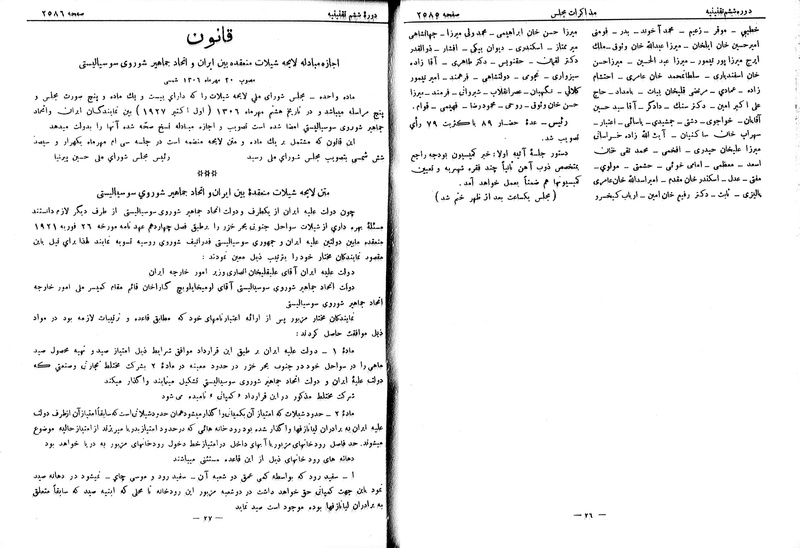 دوره ششم تقنینیه
مذاکرات مجلس
صفحه ۲۵۸۵
خطیبی ـ موقر ـ زعیم ـ محمد آخوند ـ بدر ـ فومنی
امیرحسین خان ایلخان ـ میرزا عبدالله خان وثوق ـ ملک
ایرج میرزا پور تیمور ـ میرزا عبد الحسین ـ میرزا حسن
خان اسفندیاری ـ سلطانمحمد خان عامری ـ احتشام
زاده ـ عمادی ـ مرتضی قلیخان بیات ـ بامداد ـ حاج
علی اکبر امین ـ دکتر سنک ـ دادگر ـ آقا سید حسین
آقایان ـ خواجوی ـ دشتی ـ جمشیدی ـ یاسائی ـ اعتبار ـ
سهراب خان ساکنیان ـ آیت الله زاده خراسانی
میرزا علیخان حیدری ـ افخمی ـ محمد تقی خان
اسعد ـ معظمی ـ امامی خوئی ـ حشمتی ـ مولوی ـ
مفتی ـ عدل ـ اسکندرخان مقدم ـ امیراسدالله خان عامری
پالیزی ـ ثابت ـ دکتر رفیع خان امین ـ ارباب کیخسرو
میرزا حسن خان ابراهیمی ـ محمد ولی میرزا ـ جهانشاهی
میر ممتاز ـ اسکندری ـ دیوان بیگی ـ افشار ـ ذوالقدر
دکتر لقمان ـ حقنویس ـ دکتر طاهری ـ آقا زاده
سبزواری ـ نجومی ـ دولتشاهی ـ فرمند ـ امیر تیمور
کلالی ـ نگهبان ـ عصرانقلاب ـ شیروانی ـ فرمند ـ میرزا
حسن خان وثوق ـ روحی ـ محمود رضا ـ فهیمی ـ قوام ـ
رئیس ـ عدۀ حضار ۸۹ باکثریت ۷۹ رأی
تصویب شد.
دستور جلسۀ آتیه اولا: خبر کمیسیون بودجه راجع
بمتخصص ذوب آهن ثانیاً چند فقره شهریه و تعیین
کمیسیونها هم ضمناً بعمل خواهد آمد.
( مجلس یکساعت بعد از ظهر ختم شد )
ـ ۲۶ ـ
دورۀ ششم تقنینیه
صفحه ۲۵۸۶
قانون
اجازه مبادله لایحه شیلات منعقده بین ایران و اتحاد جماهیر شوروی سوسیالیستی
مصوب ۳۰ مهرماه ۱۳۰۶ شمسی
ماده واحده ـ مجلس شورای ملی لایحه شیلات را که دارای بیست و یک ماده و پنج صورت مجلس و
پنج مراسله میباشد و در تاریخ هشتم مهرماه ۱۳۰۶ (اول اکتبر ۱۹۲۷) بین نمایندگان ایران واتحاد
جماهیر شوروی سوسیالیستی امضا شده است تصویب و اجازه مبادله نسخ صحّه شده آنها را بدولت میدهد
این قانون که مشتمل بر یک ماده و متن لایحه منضمه است در جلسه سی ام مهرماه یکهزار و سیصد و
شش شمسی بتصویب مجلس شورای ملی رسید رئیس مجلس شورای ملی حسین پیرنیا
***
متن لایحه شیلات منعقدۀ بین ایران و اتحاد جماهیر شوروی سوسیالیستی
چون دولت علیه ایران از یکطرف و دولت اتحاد جماهیر شوروی سوسیالیستی از طرف دیگر لازم دانستند
مسئلۀ بهره داری از شیلات سواحل جنوبی بحر خزر را بر طبق فصل چهاردهم عهد نامه مورخه ۲۶ فوریه ۱۹۲۱
منعقده مابین دولتین علیه ایران و جمهوری سوسیالیستی فدراتیف شوروی روسیه تسویه نمایند لهذا برای قبل باین
مقصود نمایندگان مختار خود را بترتیب ذیل معین نمودند :
دولت علیه ایران آقای علیقلیخان انصاری وزیر امور خارجه ایران
دولت اتحاد جماهیر شوروی سوسیالیستی آقای لومیخایلویچ کاراخان قائم مقام کمیسر ملی امور خارجه
اتحاد جماهیر شوروی سوسیالیستی
نمایندکان مختار مزبور پس از ارائه اعتبارنامهای خود که مطابق قاعده و ترتیبات لازمه بود در مواد
ذیل موافقت حاصل کردند :
مادۀ ۱ ـ دولت علیه ایران بر طبق این قرارداد موافق شرایط ذیل امتیاز صید و تهیه محصول صید
ماهی را در سواحل خود در جنوب بحر خزر در حدود معینه در مادۀ ۲ بشرکت مختلط تجارتی وصنعتی که
دولت علیۀ ایران و دولت اتحاد جماهیر شوروی سوسیالیستی تشکیل مینمایند واگذار میکند
شرکت مختلط مذکور در این قرارداد « کمپانی » نامیده می شود
مادۀ ۲ ـ حدود شیلات که امتیاز آن بکمپانی واگذار میشود همان حدود شیلاتی است که سابقاً امتیاز آن از طرف دولت
علیه ایران به برادران لیانازفها واگذار شده بود رودخانه هائی که در حدود امتیاز بدریا میریزند از امتیاز حالیه موضوع
میشوند. حد فاصل رودخانهای مزبور با آبهای داخل در امتیاز خط دخول رودخانهای مزبور به دریا خواهد بود
دهانه های رودخانهای ذیل از این قاعده مستثنی میباشند
ا ـ سفید رود که بواسطه کمی عمق دو شعبه آن ـ سفید رود و موسی چای ـ نمیشود در دهانه صید
نمود باین جهت کمپانی حق خواهد داشت در دوشعبه مزبور این رودخانه تا محلی که ابنیه صید که سابقاً متعلق
به برادران لیانازفها بوده موجود است صید نماید
ـ ۲۷ ـ